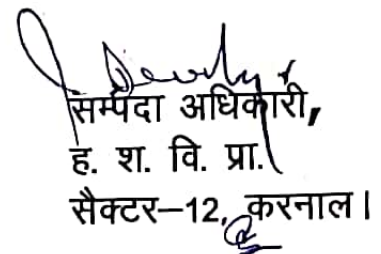 सम्पदा अधिकारी,
ह. श. वि. प्रा.
सैक्टर–12, करनाल।